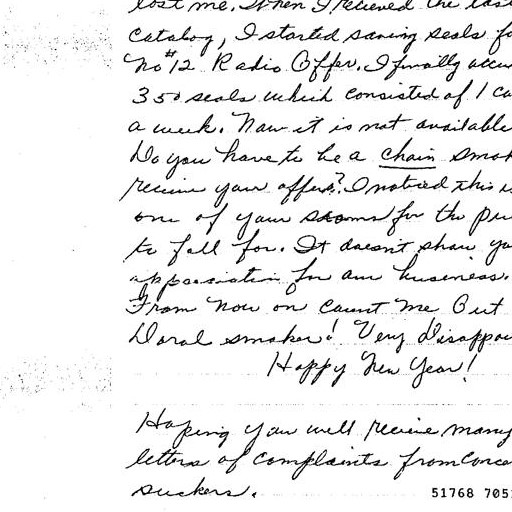 lost me. When I recieved the last
catalog, I started saving seals fo
No #12 Radio Offer. I finally accu
350 seals which consisted of 1 ca
a week. Now it is not available
Do you have to be a chain smok
receive your offers? I noticed this is
one of your scams for the pu
to fall for. It doesn't show yo
appreciation for our business.
From now on count me Out
Doral smoker! Very Disappo
Happy New Year!
Hoping you will receive many
letters of complaints from conce
suckers.
51768 705